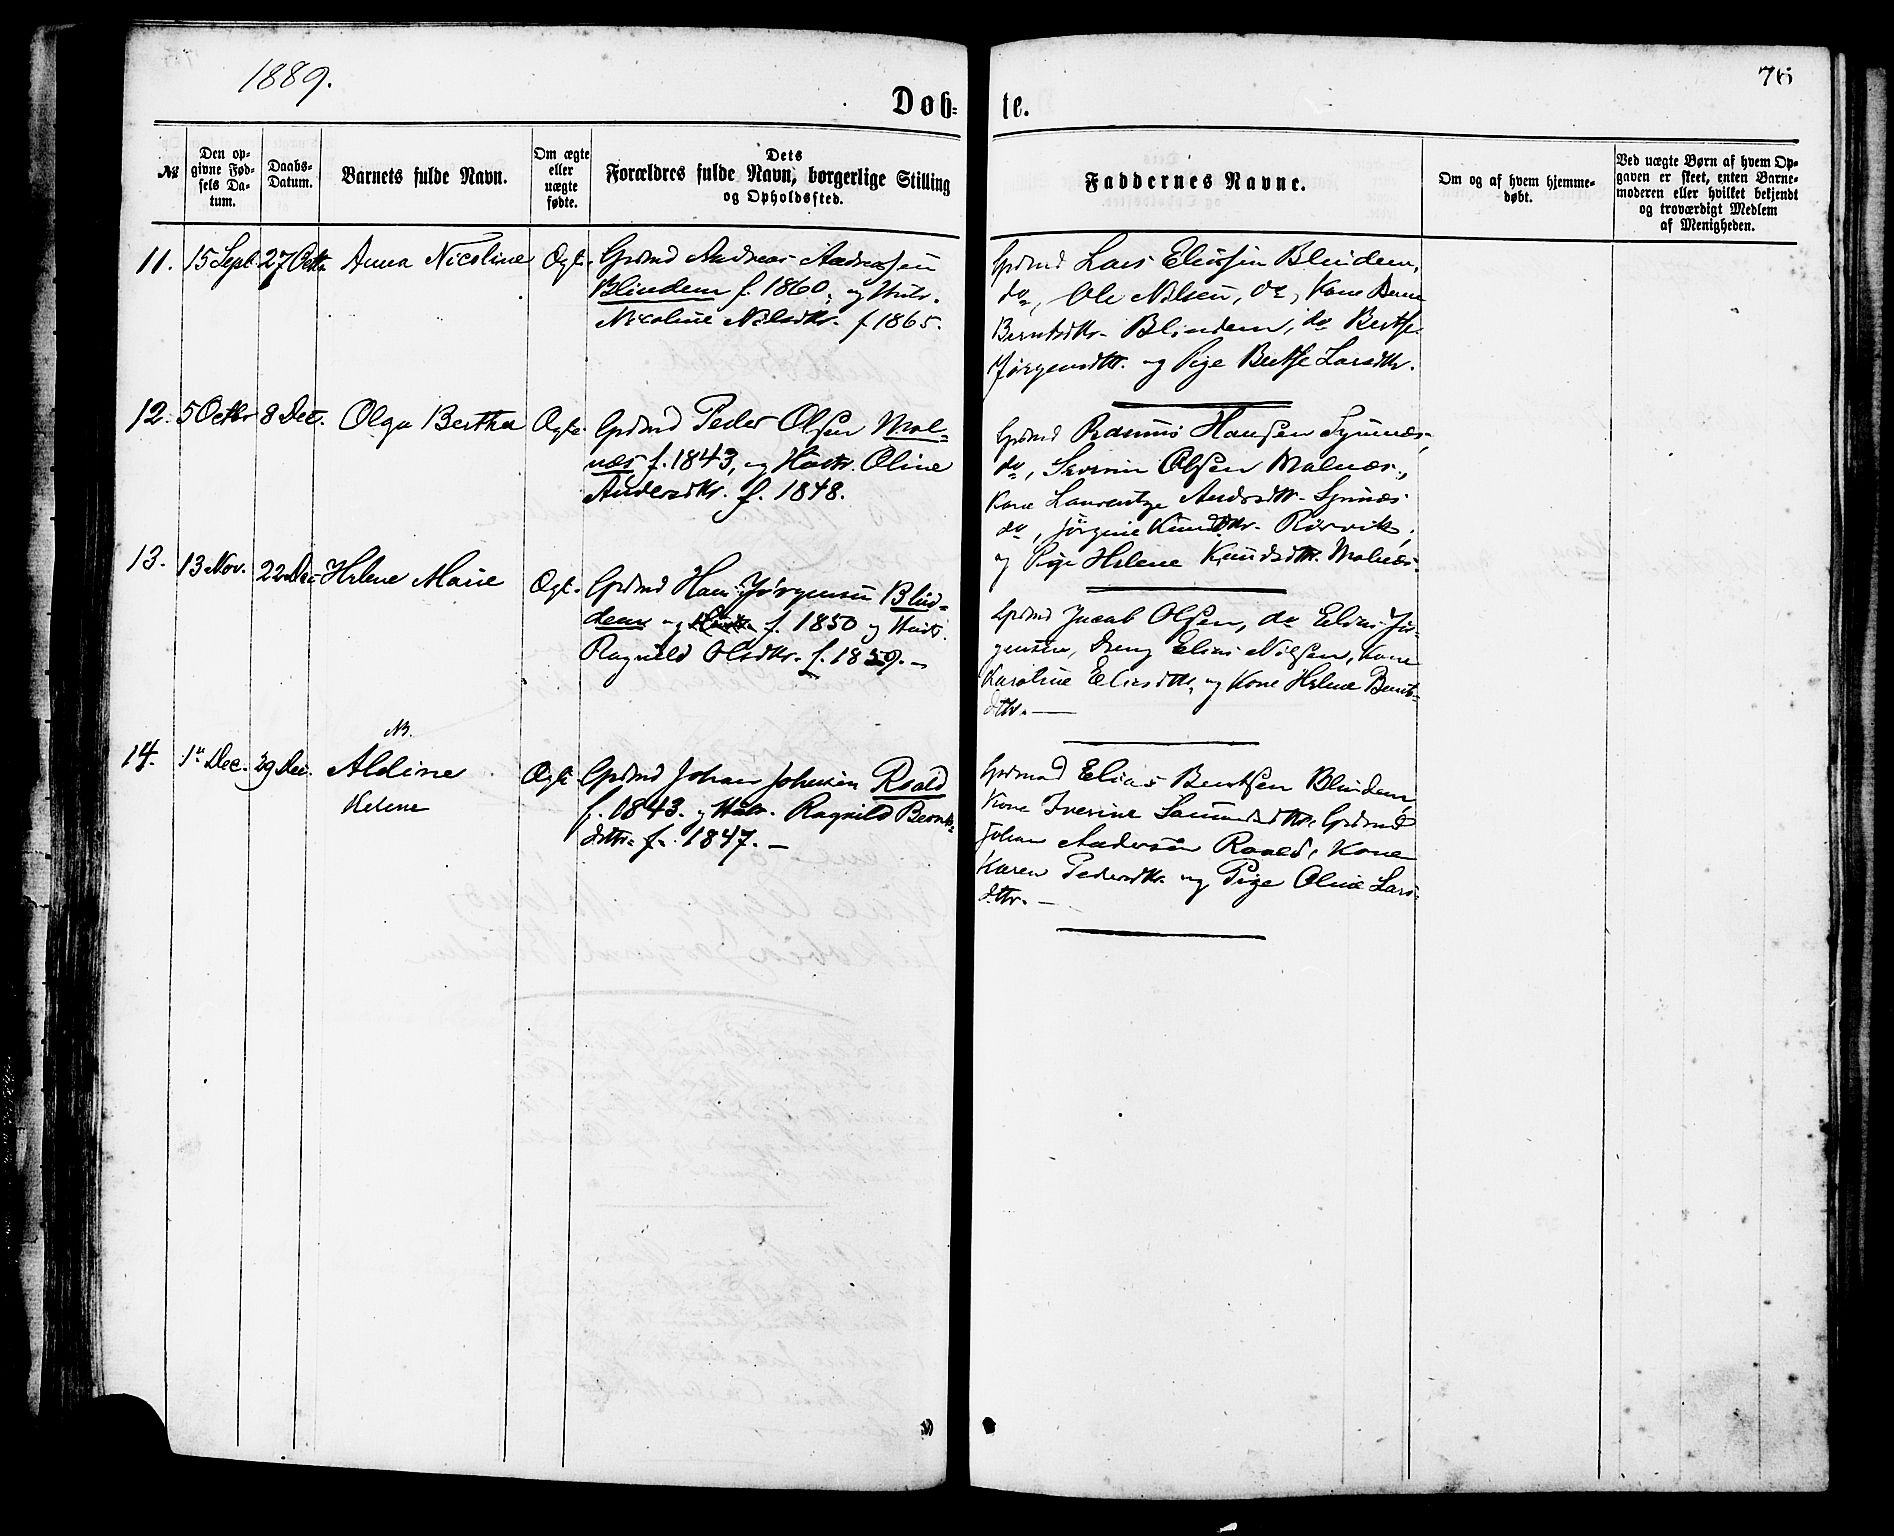 1889.
76
Døb-
te.
№
Den op-
givne Fød-
sels Da-
tum.
Daabs-
Datum.
Barnets fulde Navn.
Om ægte
eller
uægte
fødte.
Dets
Forældres fulde Navn, borgerlige Stilling
og Opholdssted.
Faddernes Navne.
Om og af hvem hjemme-
døbt.
Ved uægte Børn af hvem Op-
gaven er skeet, enten Barne-
moderen eller hvilket bekjendt
og troværdigt Medlem
af Menigheden.
11. 15 Sept. 27 Octbr Anna Nicoline Ægte
Grdmd Andreas Andreasen
Blindem f. 1860, og Hustr.
Nicoline Nilsdtr. f 1865.
Grdmd Lars Eliassen Blindem,
do, Ole Nilsen, do, Kone Berte
Berntsdtr. Blindem, do Berthe
Jørgensdtr. og Pige Berthe Larsdtr.
12. 5 Octbr 8 Dec. Olga Bertha Ægte
Grdmd Peder Olsen Mol-
næs f. 1843, og Hustr. Oline
Andersdtr. f. 1848.
Grdmd Rasmus Hansen Synnæs,
do, Severin Olsen Molnæs,
Kone Laurentze Andrsdtr. Synnæs
do, Jørgine Knudsdtr. Rørvik,
og Pige Helene Knudsdtr. Molnæs.
13. 13 Nov. 22 Dec Helene Marie Ægte.
Grdmd Hans Jørgensen Blin-
dem og Hustr. f. 1850 og Hustr.
Ragnild Olsdtr. f. 1859. -
Grdmd Jacob Olsen, do Elias Jør-
gensen, Dreng Elias Nilsen, Kone
Karoline Eliasdtr. og Kone Helene Bernts-
dtr. -
14. 1te Dec. 29 Dec. Aldine Ægte
NB.
Helene
Grdmd Johan Johnsen Roald
f. 1843. og Hustr. Ragnild Bernts-
dttr. f. 1847. -
Grdmand Elias Berntsen Blindem,
Kone Iverine Samundsdtr. Grdmd
Johan Andersen Roald, Kone
Karen Pedersdtr. og Pige Oline Lars-
dttr. -